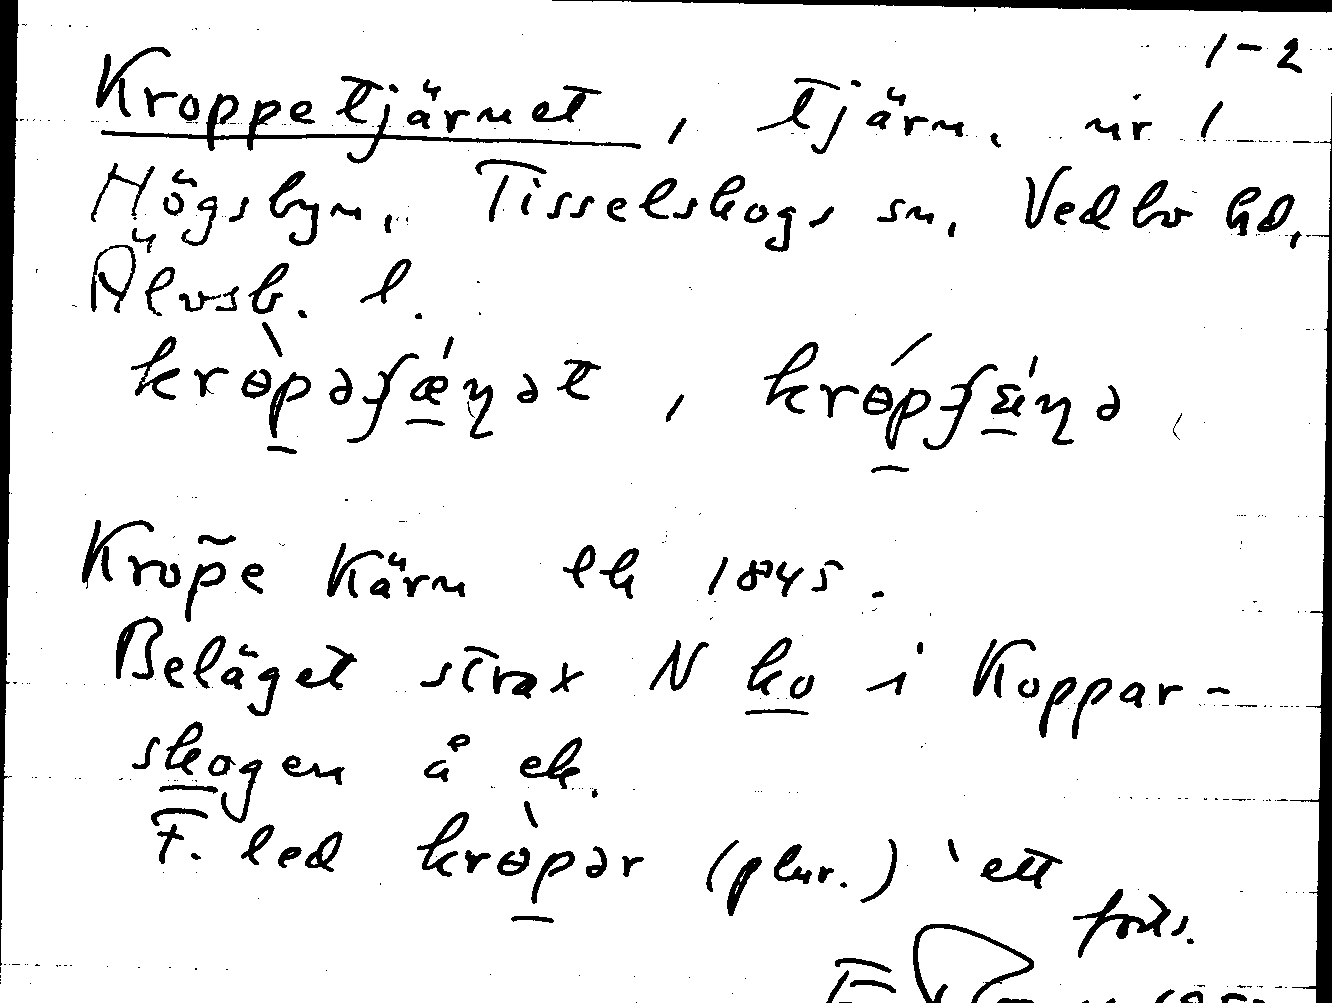 1-2
Kroppetjärnet, tjärn, nr 1
Högsbyn, Tisselskogs sn, Vedbo hd,
Älvsb. l.
krɵ̀pəʃǽɳət, krɵ́pʃǽɳə
Krop̃e Kärn ek 1845.
Beläget strax N ko i Koppar-
skogen å ek.
F. led krɵ̀pər (plur.) 'ett
forts.